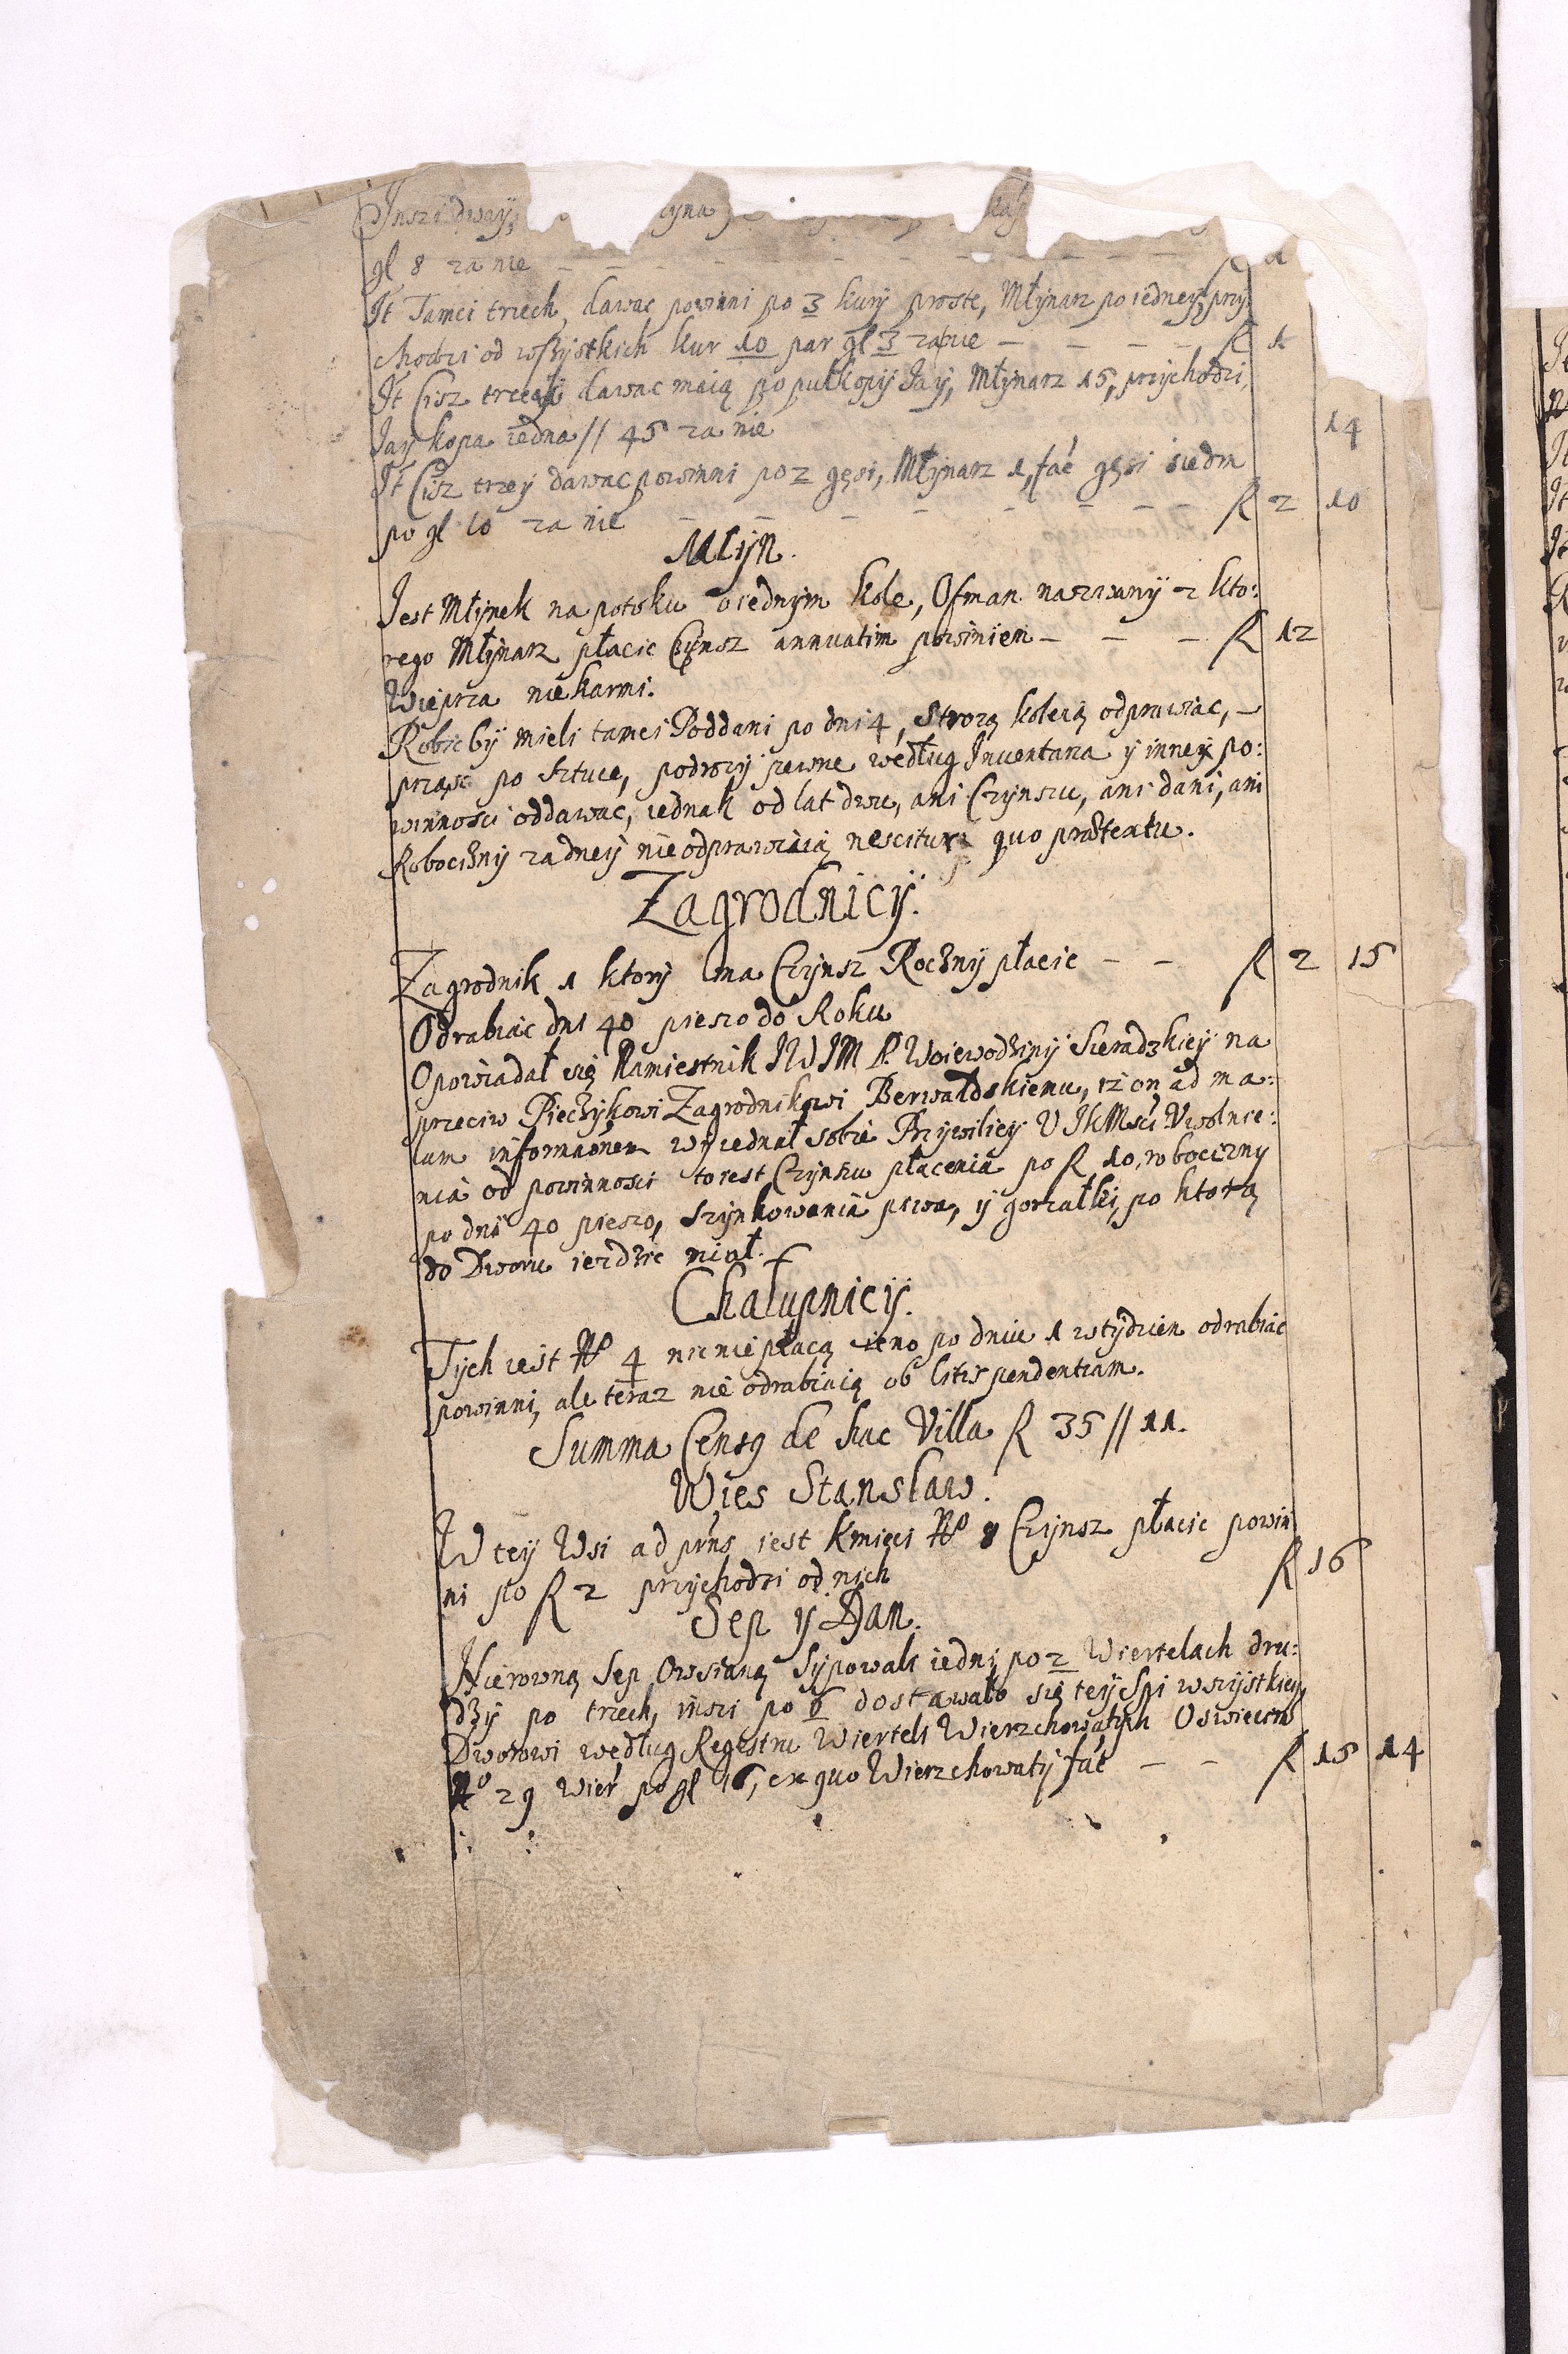 Inszi dway,
gl 8 za nie – – – – – – – – – R 1
It Tamci trzech, dawac powinni po 3 kury proste, Młynarz po iedney, przy
chodzi od wszystkich kur 10 par gl 3 za nie – – – – R 1
It Cisz trzeÿ dawac maią po pułkopÿ Jaÿ, Młÿnarz 15, przÿchodzi,
Jaÿ kopa iedna // 45 za nie 14
It Cisz trzeÿ dawac powinni po 2 gęsi, Młÿnarz 1, fac̄ gęsi siedm
po gl 10 za nie – – – – – – – R 2 10
Młÿn.
Jest Młÿnek na potoku o iednÿm kole, Ofman nazwanÿ z kto:
rego Młÿnarz płacic Czÿnsz annuatim powinien – – – R 12
Wieprza nie karmi.
Robic bÿ mieli tamci Poddani po dni 4, strożą koleią odprawiac, –
prząsc po sztuce, podrozÿ pewne według Inuentarza ÿ inney po:
winnosci oddawac, iednak od lat dwu, ani Czÿnszu, ani dani, ani
Robociznÿ zadneÿ nie odprawiaią nescitur quo prætextu.
Zagrodnicÿ.
Zagrodnik 1 ktorÿ ma Czÿnsz Rocznÿ płacic – – R 2 15
Odrabiac dni 40 pieszo do Roku
Opowiadał się Namiestnik JWJM P. Woiewodzinÿ Sieradzkieÿ na
przeciw Piechÿkowi Zagrodnikowi Berwałdskiemu, iż on ad ma:
lam informaōnem wÿiednał sobie Przÿwilieÿ U JKMsci Uwolnie:
nia od powinnosci to iest Czÿnszu płacenia po R 10, robociznÿ
po dni 40 pieszo, szÿnkowania piwa, ÿ gorzałki, po ktorą
do Dworu iezdzic miał.
Chałupnicÿ.
Tÿch iest No 4 nic nie płacą ieno po dniu 1 w tÿdzien odrabiac
powinni, ale teraz nie odrabiaią ob litispendentiam.
Summa Censq de hac Villa R 35 // 11.
Wies Stanslaw.
W teÿ Wsi ad prn̄s iest Kmieci No 8 Czÿnsz płacic powin
ni po R 2 przÿchodzi od nich R 16
Sep ÿ Dan.
Nierowną Sep Owsianą Sÿpowali iedni po 2 Wiertelach dru:
dzÿ po trzech, inszi po 6 dostawało się teÿ Spi wszÿstkieÿ
Dworowi według Regestru Wierteli Wierzchowatÿch Oswiecim
No 29 wier po gl 16, ex quo Wierzchowatÿ fac̄ – – R 15 14